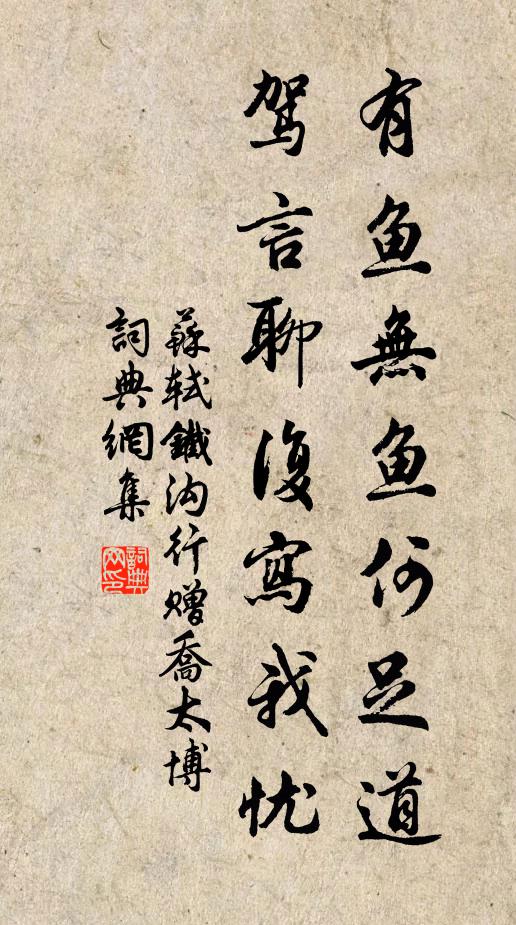 有鱼無鱼何足道
驾言聊復寫我忧
蘇轼鐵沟行赠喬太博
詞典網集
詞典网印